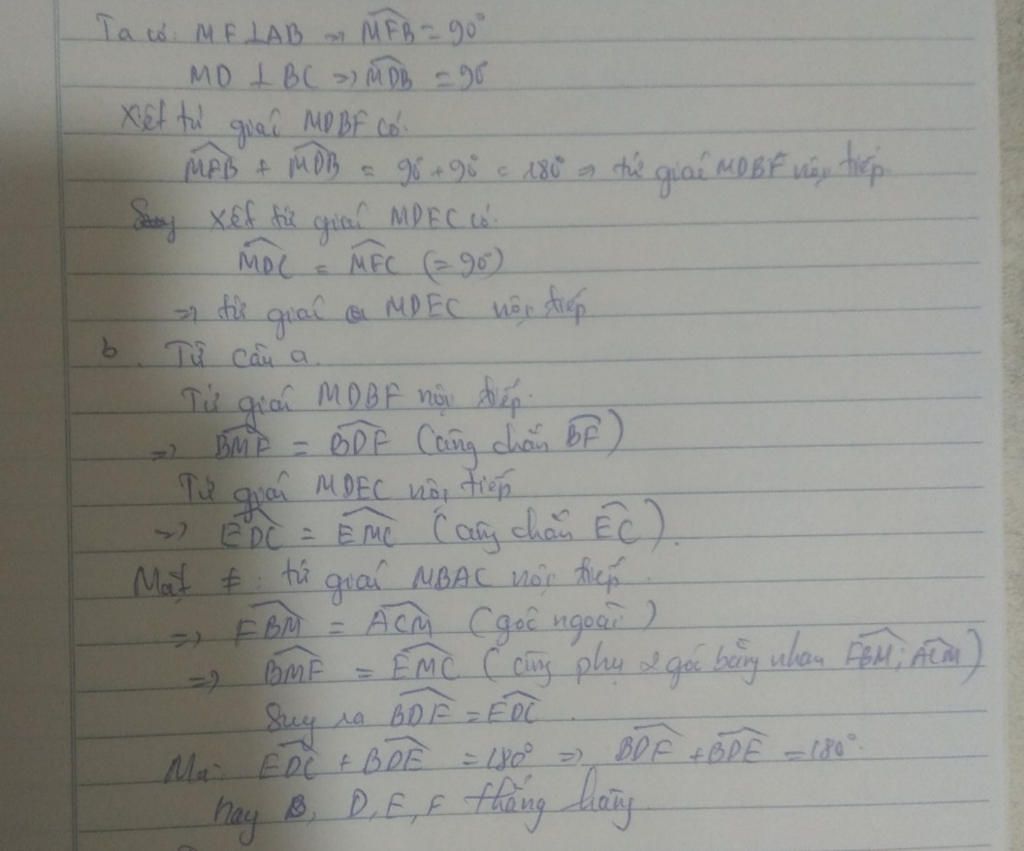 Ta có: MF⊥AB => \widehat{MFB} = 90°
MD ⊥ BC => \widehat{MDB} = 90°
Xét tứ giác MDBF có.
\widehat{MFB} + \widehat{MDB} = 90° + 90° = 180° => tứ giác MDBF nội tiếp
Suy xét tứ giác MDEC có.
\widehat{MDC} = \widehat{MEC} (= 90°)
=> tứ giác MDEC nội tiếp
b. Từ câu a.
Tứ giác MDBF nội tiếp.
=> \widehat{BMF} = \widehat{BDF} (cùng chắn \widehat{BF})
Tứ giác MDEC nội tiếp
=> \widehat{EDC} = \widehat{EMC} (cùng chắn \widehat{EC}).
Mặt ≠: tứ giác MBAC nội tiếp.
=> \widehat{FBM} = \widehat{ACM} (góc ngoài)
=> \widehat{BMF} = \widehat{EMC} (cùng phụ 2 góc bằng nhau \widehat{FBM}; \widehat{ACM})
Suy ra \widehat{BDF} = \widehat{EDC}.
Mà: \widehat{EDC} + \widehat{BDE} = 180° => \widehat{BDF} + \widehat{BDE} = 180°.
hay D, E, F thẳng hàng.